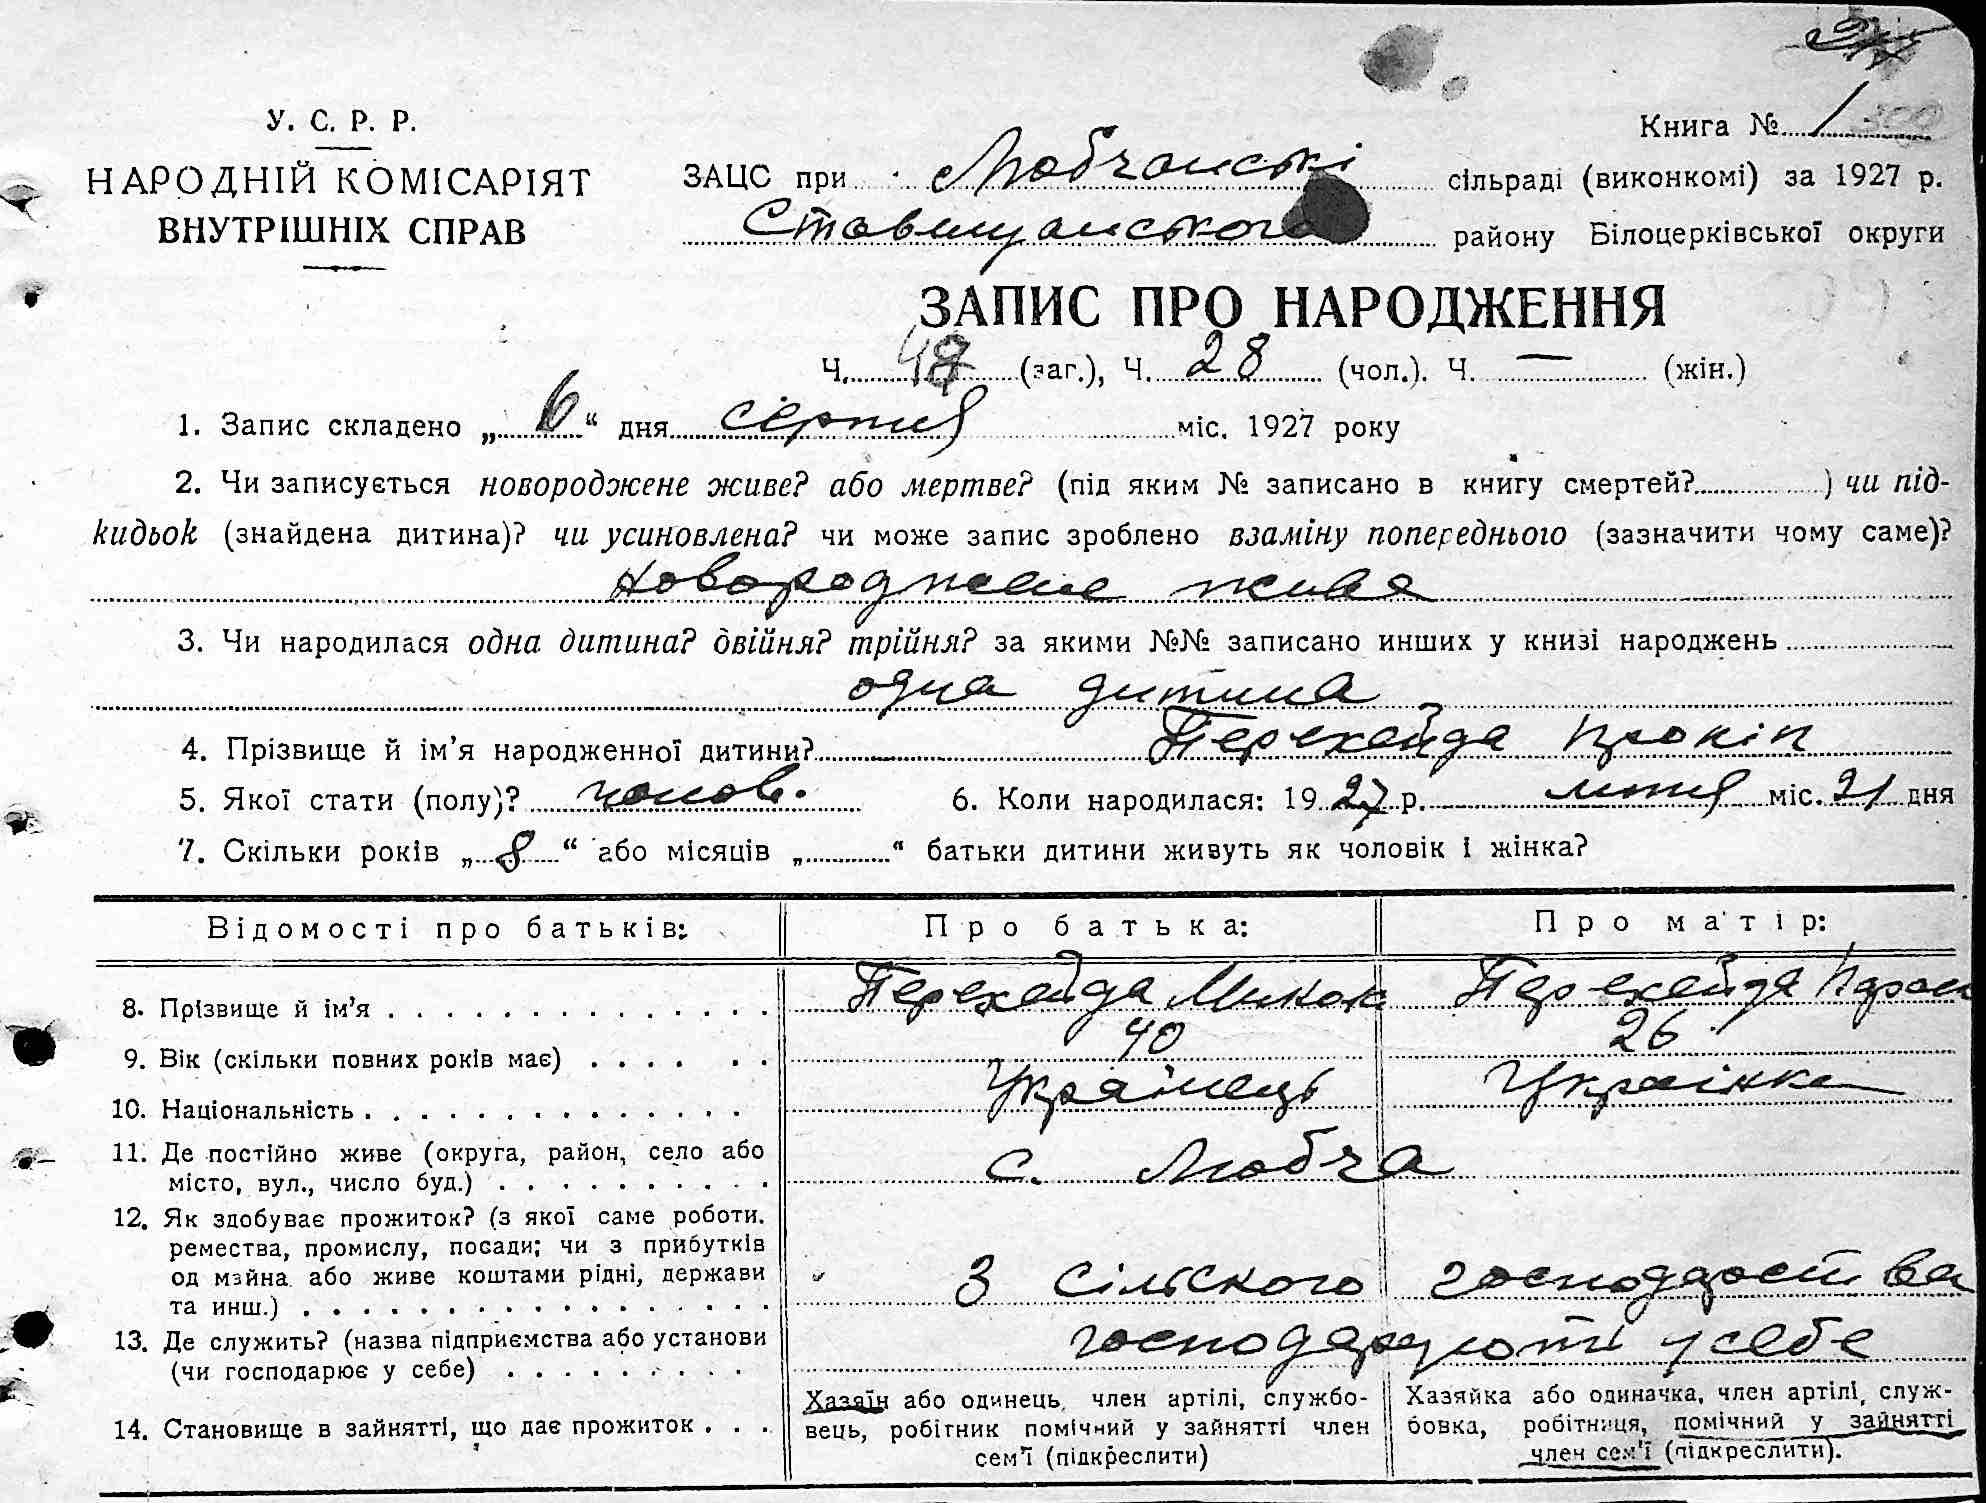 У. С. Р. Р.
НАРОДНІЙ КОМІСАРІЯТ
ВНУТРІШНІХ СПРАВ
Книга № 1
ЗАЦС при Любчанські сільраді (виконкомі) за 1927 р.
Ставищанського району Білоцерківської округи
ЗАПИС ПРО НАРОДЖЕННЯ
Ч. (заг.), Ч. 28 (чол.). Ч. — (жін.)
1. Запис складено „ 6 “ дня серпня міс. 1927 року
2. Чи записується новороджене живе? або мертве? (під яким № записано в книгу смертей? ) чи під-
кидьок (знайдена дитина)? чи усиновлена? чи може запис зроблено взаміну попереднього (зазначити чому саме)?
новороджене живе
3. Чи народилася одна дитина? двійня? трійня? за якими №№ записано инших у книзі народжень
одна дитина
4. Прізвище й ім’я народженної дитини? Перехейда Прокіп
5. Якої стати (полу)? чолов. 6. Коли народилася: 1927 р. липня міс. 21 дня
7. Скільки років „ 8 “ або місяців „ “ батьки дитини живуть як чоловік і жінка?
Відомості про батьків: Про батька: Про матір:
8. Прізвище й ім’я Перехейда Микола Перехейда
9. Вік (скільки повних років має) 40 26
10. Національність Українець Українка
11. Де постійно живе (округа, район, село або
місто, вул., число буд.) с. Любча
12. Як здобуває прожиток? (з якої саме роботи.
ремества, промислу, посади; чи з прибутків
од майна або живе коштами рідні, держави
та инш.) З сільского господарства
13. Де служить? (назва підприємства або установи
(чи господарює у себе) господарюють у себе
14. Становище в зайнятті, що дає прожиток
Хазяїн або одинець, член артілі, службо-
вець, робітник помічний у зайнятті член
сем’ї (підкреслити)
Хазяйка або одиначка, член артілі, служ-
бовка, робітниця, помічний у зайнятті
член сем’ї (підкреслити).